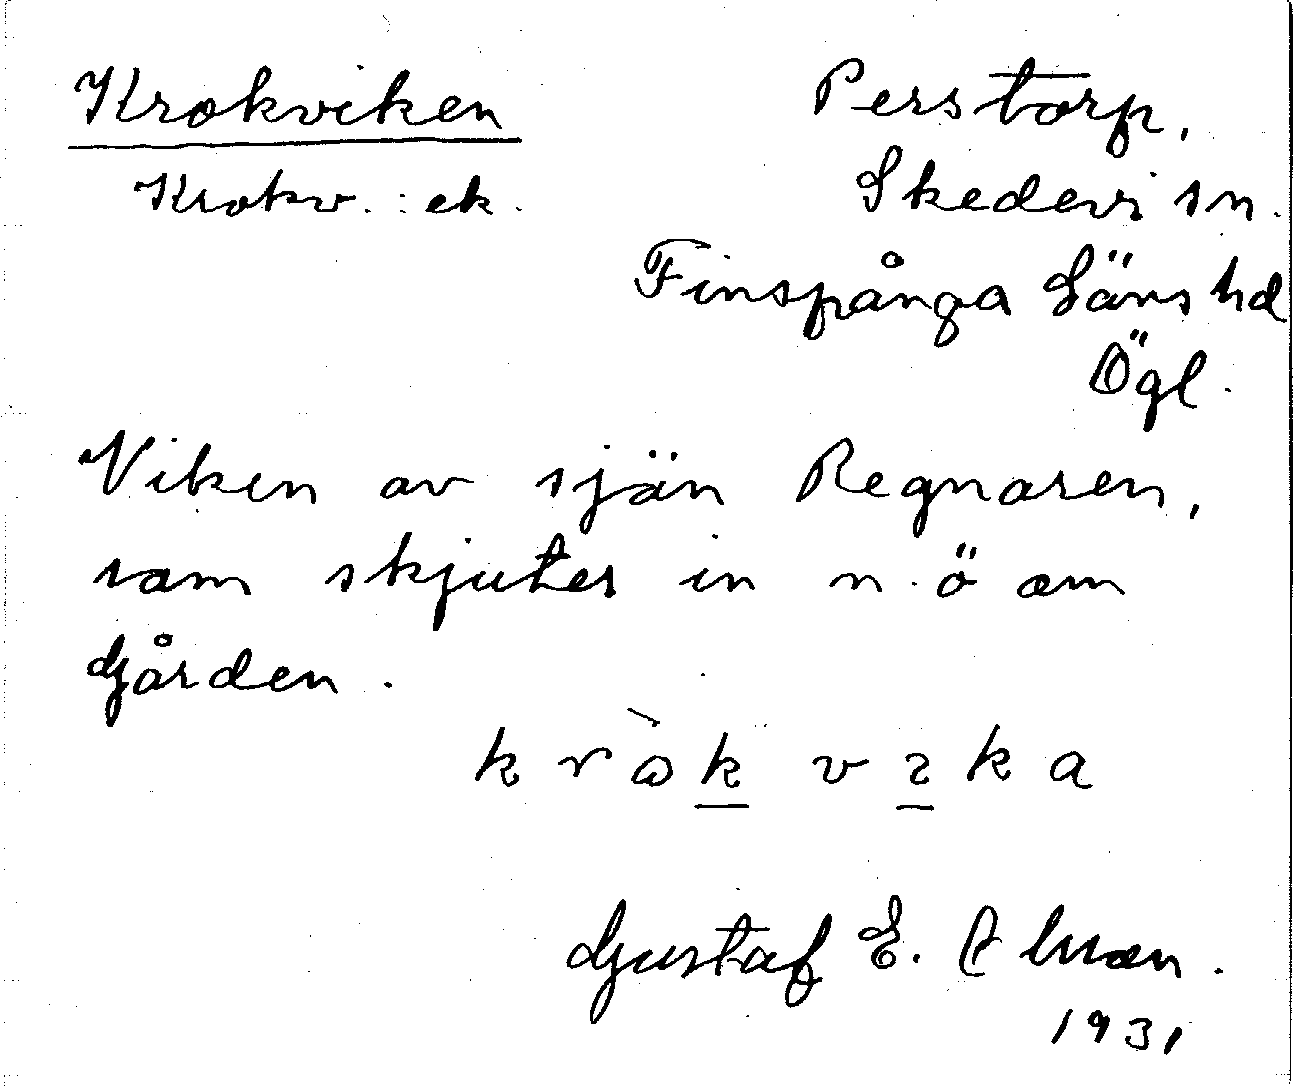 Krokviken
Krokv. : ek.
Perstorp,
Skedevi sn.
Finspånga läns hd
Ögl.
Viken av sjön Regnaren,
som skjuter in n. ö om
Gården.
kròkvika
Gustaf E.
1931